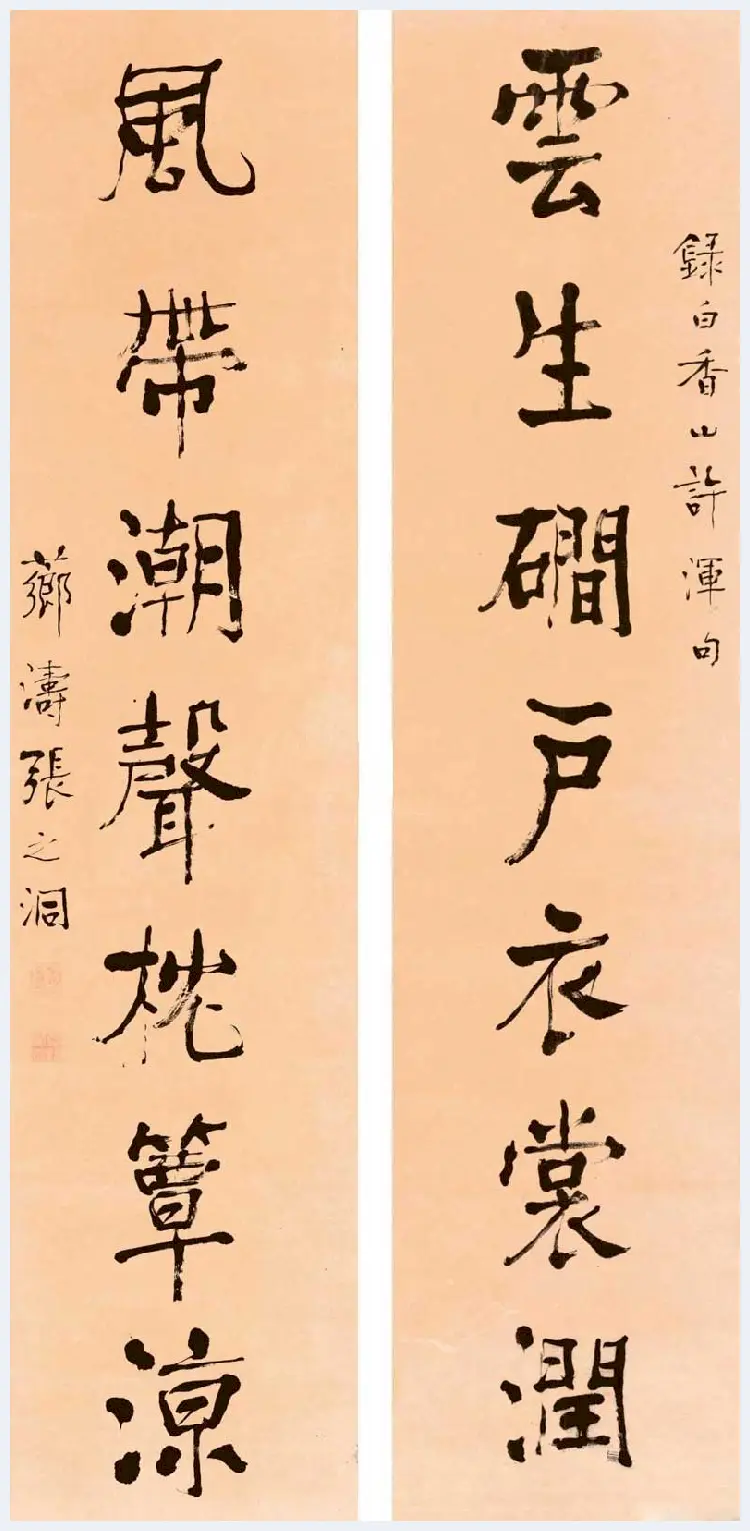 録白香山許渾句
雲生磵戸衣裳潤
風帶潮聲枕簟涼
薌濤張之洞